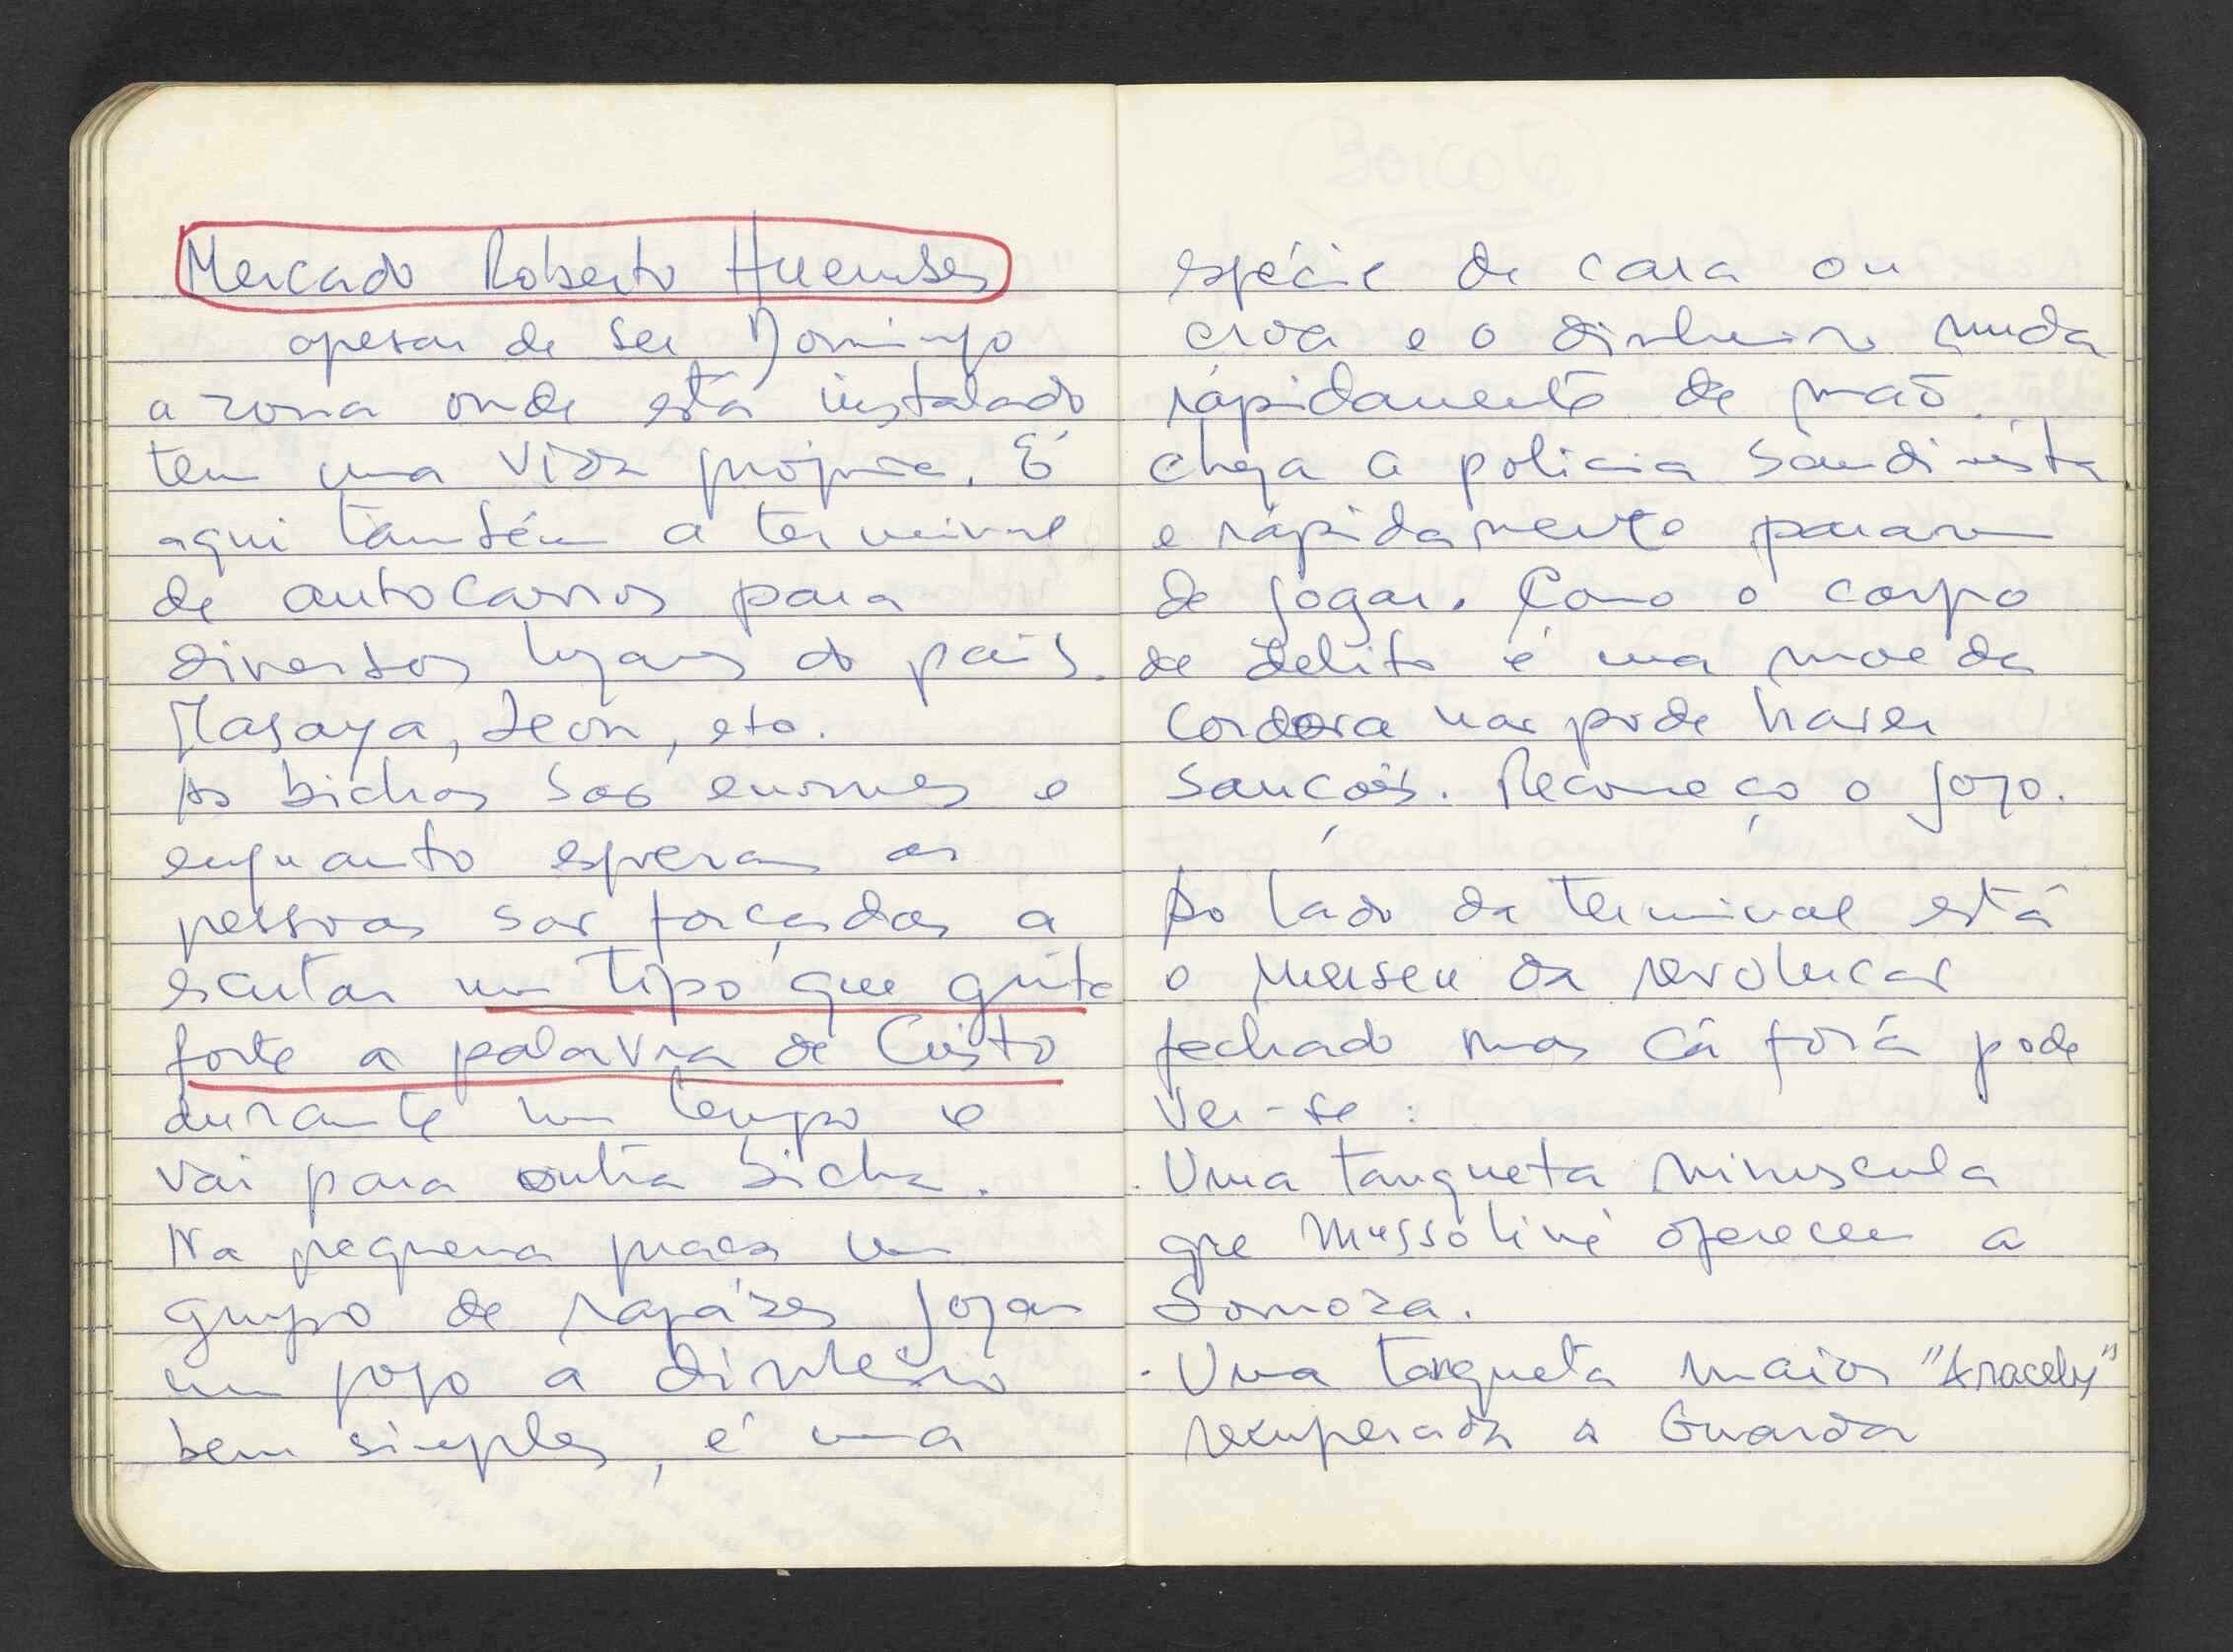 Mercado Roberto Huembes
apesar de ser Domingo
a zona onde está instalado
tem uma vida própria. É
aqui também a terminal
de autocarros para
diversos lugares do país.
Masaya, Leon, etc.
As bichas sao enormes e
enquanto esperam as
pessoas sao forçadas a
escutar um tipo que grita
forte a palavra de Cristo
durante um tempo e
vai para outra bicha.
Na pequena praça um
grupo de rapázes jogam
um jogo a dinheiro
bem simples, é uma
espécie de cara ou
croa e o dinheiro muda
rápidamente de mão.
chega a policia Sandinista
e rápidamente param
de jogar. Como o corpo
de delito é uma moeda
Cordova nao pode haver
sanções. Recomeço o jogo.
Ao lado da terminal está
o museu da revolucao
fechado mas cá fora pode
ver-se :
. Uma tanqueta minuscula
que Mussolini ofereceu a
Somoza.
. Uma tanqueta maior "Aracely"
recuperada a Guarda
Boicote